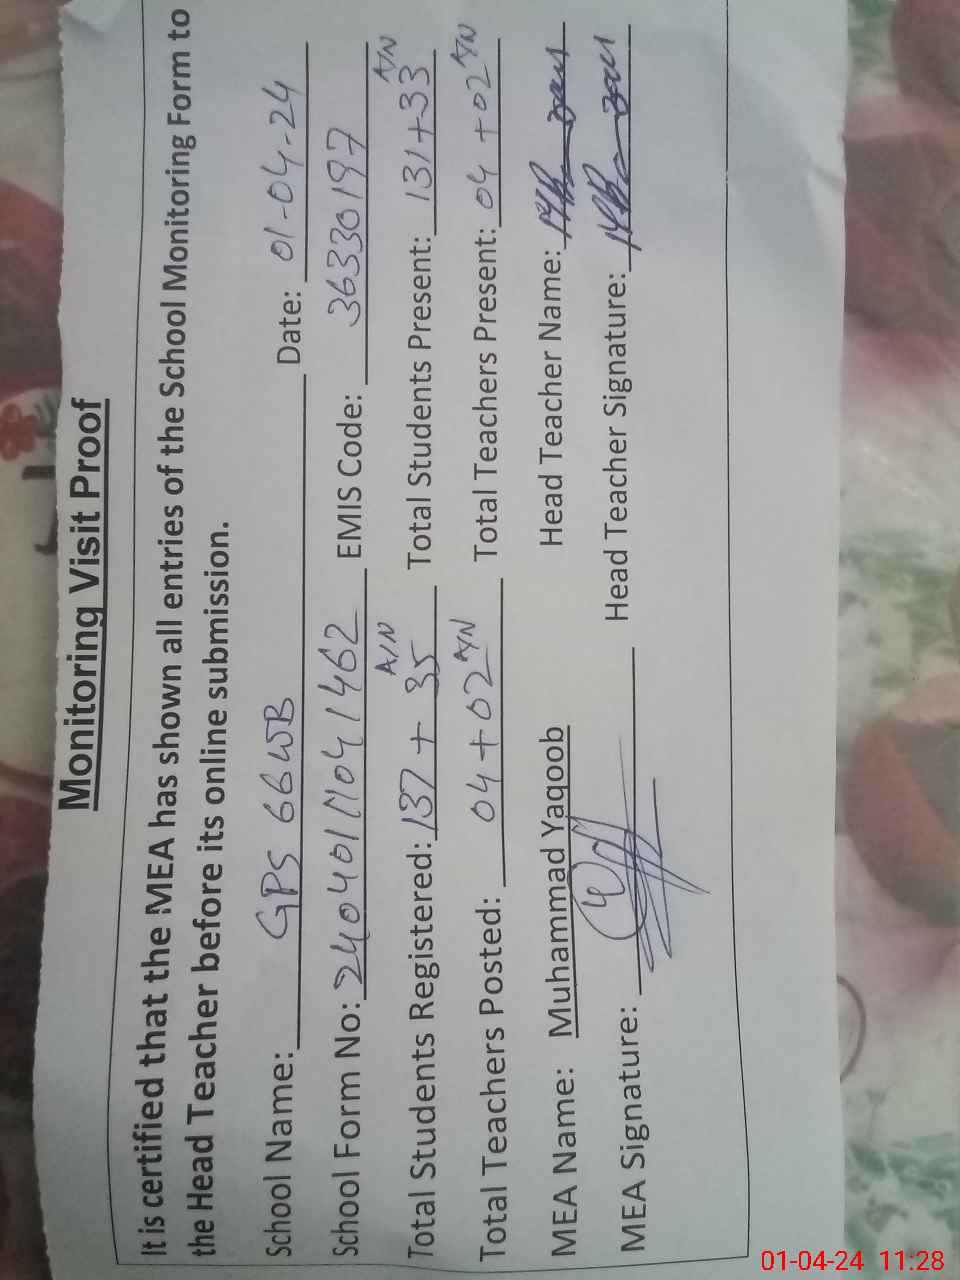 Monitoring Visit Proof
It is certified that the MEA has shown all entries of the School Monitoring Form to
the Head Teacher before its online submission.
School Name: GPS 66 WB Date: 01-04-24
School Form No: 24040111041462 EMIS Code: 36330197
Total Students Registered: 137 + 35 A/N Total Students Present: 131+33 A/N
Total Teachers Posted: 04+02 A/N Total Teachers Present: 04+02 A/N
MEA Name: Muhammad Yaqoob Head Teacher Name:
MEA Signature: Head Teacher Signature:
01-04-24 11:28